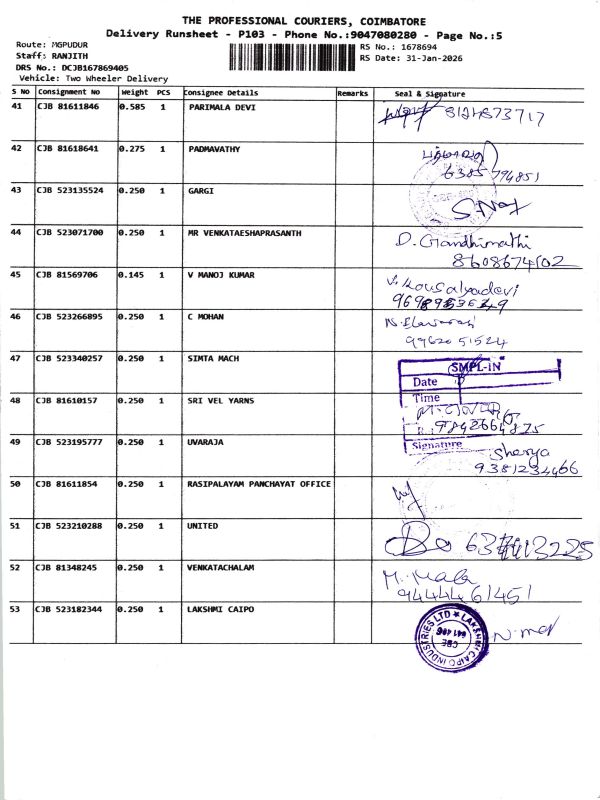 THE PROFESSIONAL COURIERS, COIMBATORE
Delivery Runsheet - P103 - Phone No.:9047080280 - Page No.:5
Route: MGPUDUR
Staff: RANJITH
DRS No.: DCJB167869405
Vehicle: Two Wheeler Delivery
RS No.: 1678694
RS Date: 31-Jan-2026
S No Consignment No Weight PCS Consignee Details Remarks Seal & Signature
41 CJB 81611846 0.585 1 PARIMALA DEVI 8124873717
42 CJB 81618641 0.275 1 PADMAVATHY
6385794851
43 CJB 523135524 0.250 1 GARGI
44 CJB 523071700 0.250 1 MR VENKATAESHAPRASANTH D. Gandhimathi
8608674602
45 CJB 81569706 0.145 1 V MANOJ KUMAR V. Kousalyadevi
46 CJB 523266895 0.250 1 C MOHAN
9962051524
47 CJB 523340257 0.250 1 SIMTA MACH SMPL-IN
Date
Time
48 CJB 81610157 0.250 1 SRI VEL YARNS
9842664875
Signature
49 CJB 523195777 0.250 1 UVARAJA
9381234466
50 CJB 81611854 0.250 1 RASIPALAYAM PANCHAYAT OFFICE
51 CJB 523210288 0.250 1 UNITED
52 CJB 81348245 0.250 1 VENKATACHALAM M. Mala
9444461451
53 CJB 523182344 0.250 1 LAKSHMI CAIPO
LAKSHMI CAIPO INDUSTRIES LTD
CBE
641 406